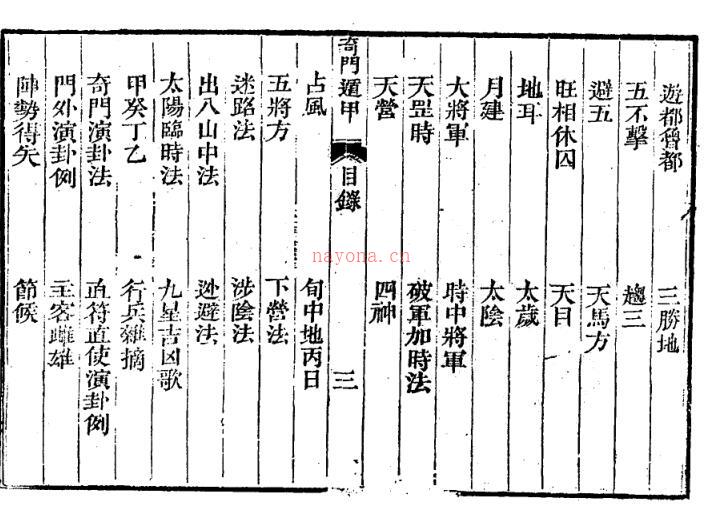 遊都魯都　三勝地
五不擊　趨三
避五　天馬方
旺相休囚　天目
地耳　太歲
月建　太陰
大將軍　時中將軍
天罡時　破軍加時法
天營　四神
奇門遁甲　目錄　三
占風　旬中地丙日
五將方　下營法
迷路法　涉陰法
出八山中法　迯避法
太陽臨時法　九星吉凶歌
甲癸丁乙　行兵雜摘
奇門演卦法　直符直使演卦例
門外演卦例　主客雌雄
陣勢得失　節候
nayona.cn